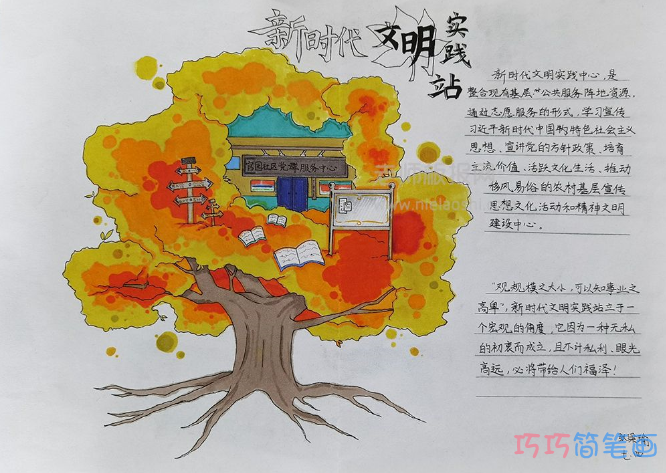 新时代文明实践站
新时代文明实践中心,是
整合现有基层"公共服务阵地资源,
通过志愿服务的形式,学习宣传
习近平新时代中国的特色社会主义
思想、宣讲党的方针政策、培育
主流价值、活跃文化生活、推动
移风易俗的农村基层宣传
思想文化活动和精神文明
建设中心。
社区党群服务中心
"观规模之大小,可以知事业之
高卑",新时代文明实践站立于一
个宏观的角度,它因为一种无私
的初衷而成立,且不计私利、眼光
高远,必将带给人们福泽!
巧巧简笔画